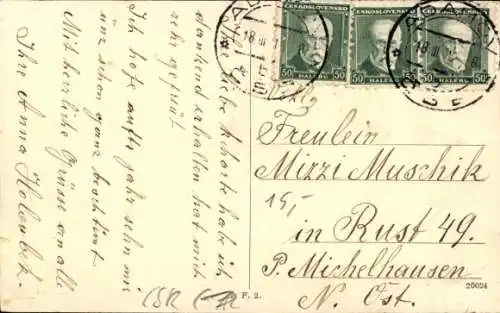 ČESKOSLOVENSKO ČESKOSLOVENSKO ČESKOSLOVENSKO
50 HALÉŘŮ 50 50 HALÉŘŮ 50 50 HALÉŘŮ 50
18 III
18 III
Liebe Karte habe ich
dankend erhalten hat mich
sehr gefreut
Ich hofe aufs jahr sehn wir
uns schon ganz bestimt
Mit herzliche Grüsse von alle
Ihre Anna Holoubek.
Freulein
Mizzi Muschik
in Rust 49.
P. Michelhausen
N. Öst.
15,-
ČSR
F. 2.
20024